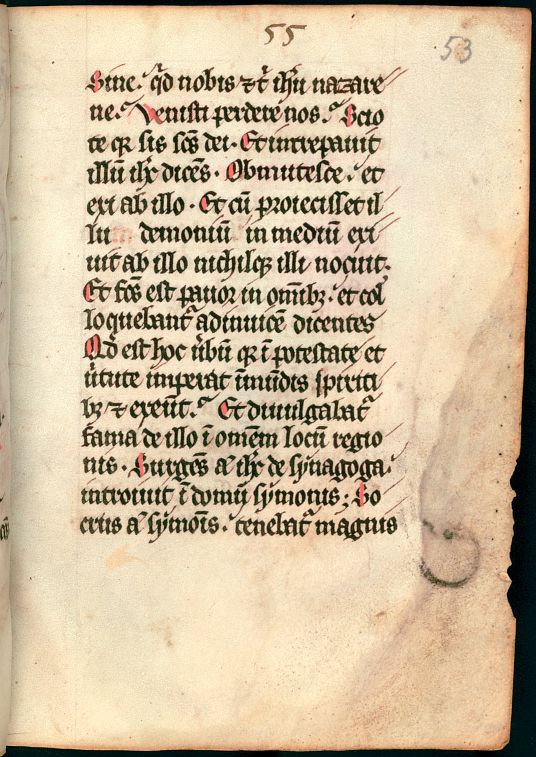 55
53
Sine. qd nobis ⁊ t̄ ihu nazare
ne. Venisti perdere nos. Scio
te qꝛ sis scs dei. Et increpauit
illū ihc dicēs. Obmutesce. et
exi ab illo. Et cū proiecisset il
lu demoniū in mediū exi
uit ab illo nichilqꝫ illi nocuit.
Et fcs est pauor in omibꝫ. et col
loquebant᷑ adinuicē dicentes
Qd est hoc ūbū qꝛ ī potestate et
ūtute imperat īmūdis spiriti
bꝫ ⁊ exeūt. Et diuulgabat᷑
fama de illo ī omēm locū regio
nis. Surgēs a͛ ihc de synagoga
introiuit ī domū symonis; So
crus a͛ symoīs. tenebat᷑ magnis